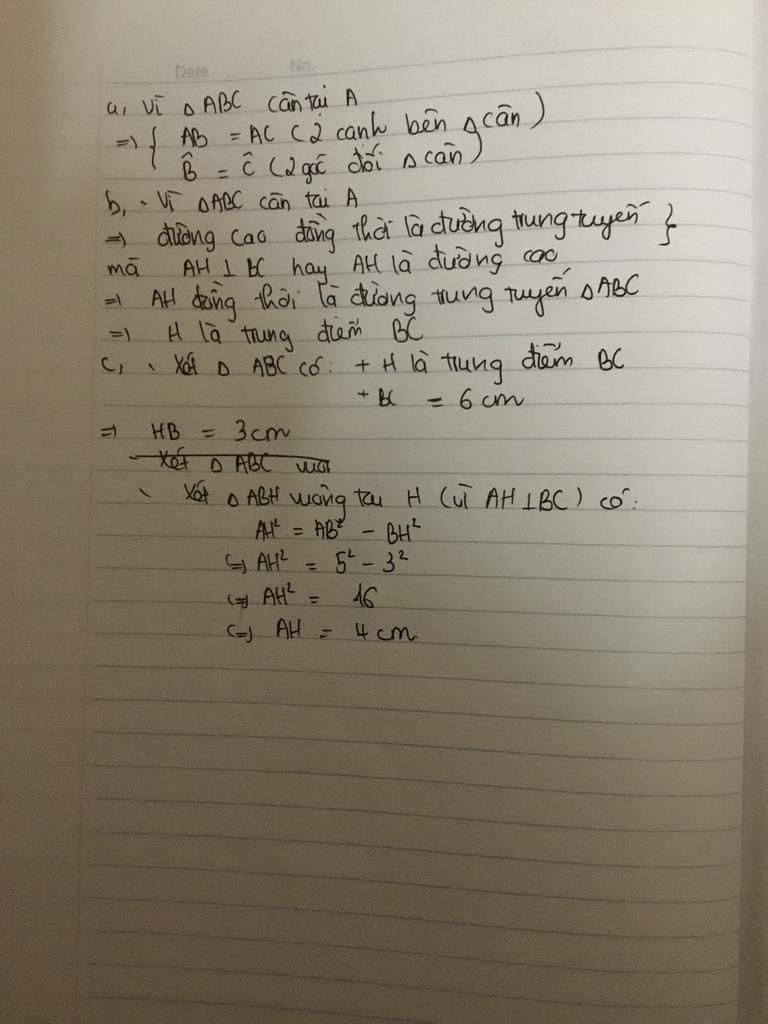 Date No.
a, Vì Δ ABC cân tại A
=> { AB = AC (2 cạnh bên Δ cân)
B̂ = Ĉ (2 góc đối Δ cân)
b, . Vì ΔABC cân tại A
=> đường cao đồng thời là đường trung tuyến }
mà AH ⊥ BC hay AH là đường cao
=> AH đồng thời là đường trung tuyến ΔABC
=> H là trung điểm BC
c, . Xét Δ ABC có: + H là trung điểm BC
+ BC = 6 cm
=> HB = 3cm
- Xét Δ ABC vuô
. Xét Δ ABH vuông tại H (vì AH⊥BC) có:
AH² = AB² - BH²
<=> AH² = 5² - 3²
<=> AH² = 16
<=> AH = 4 cm.